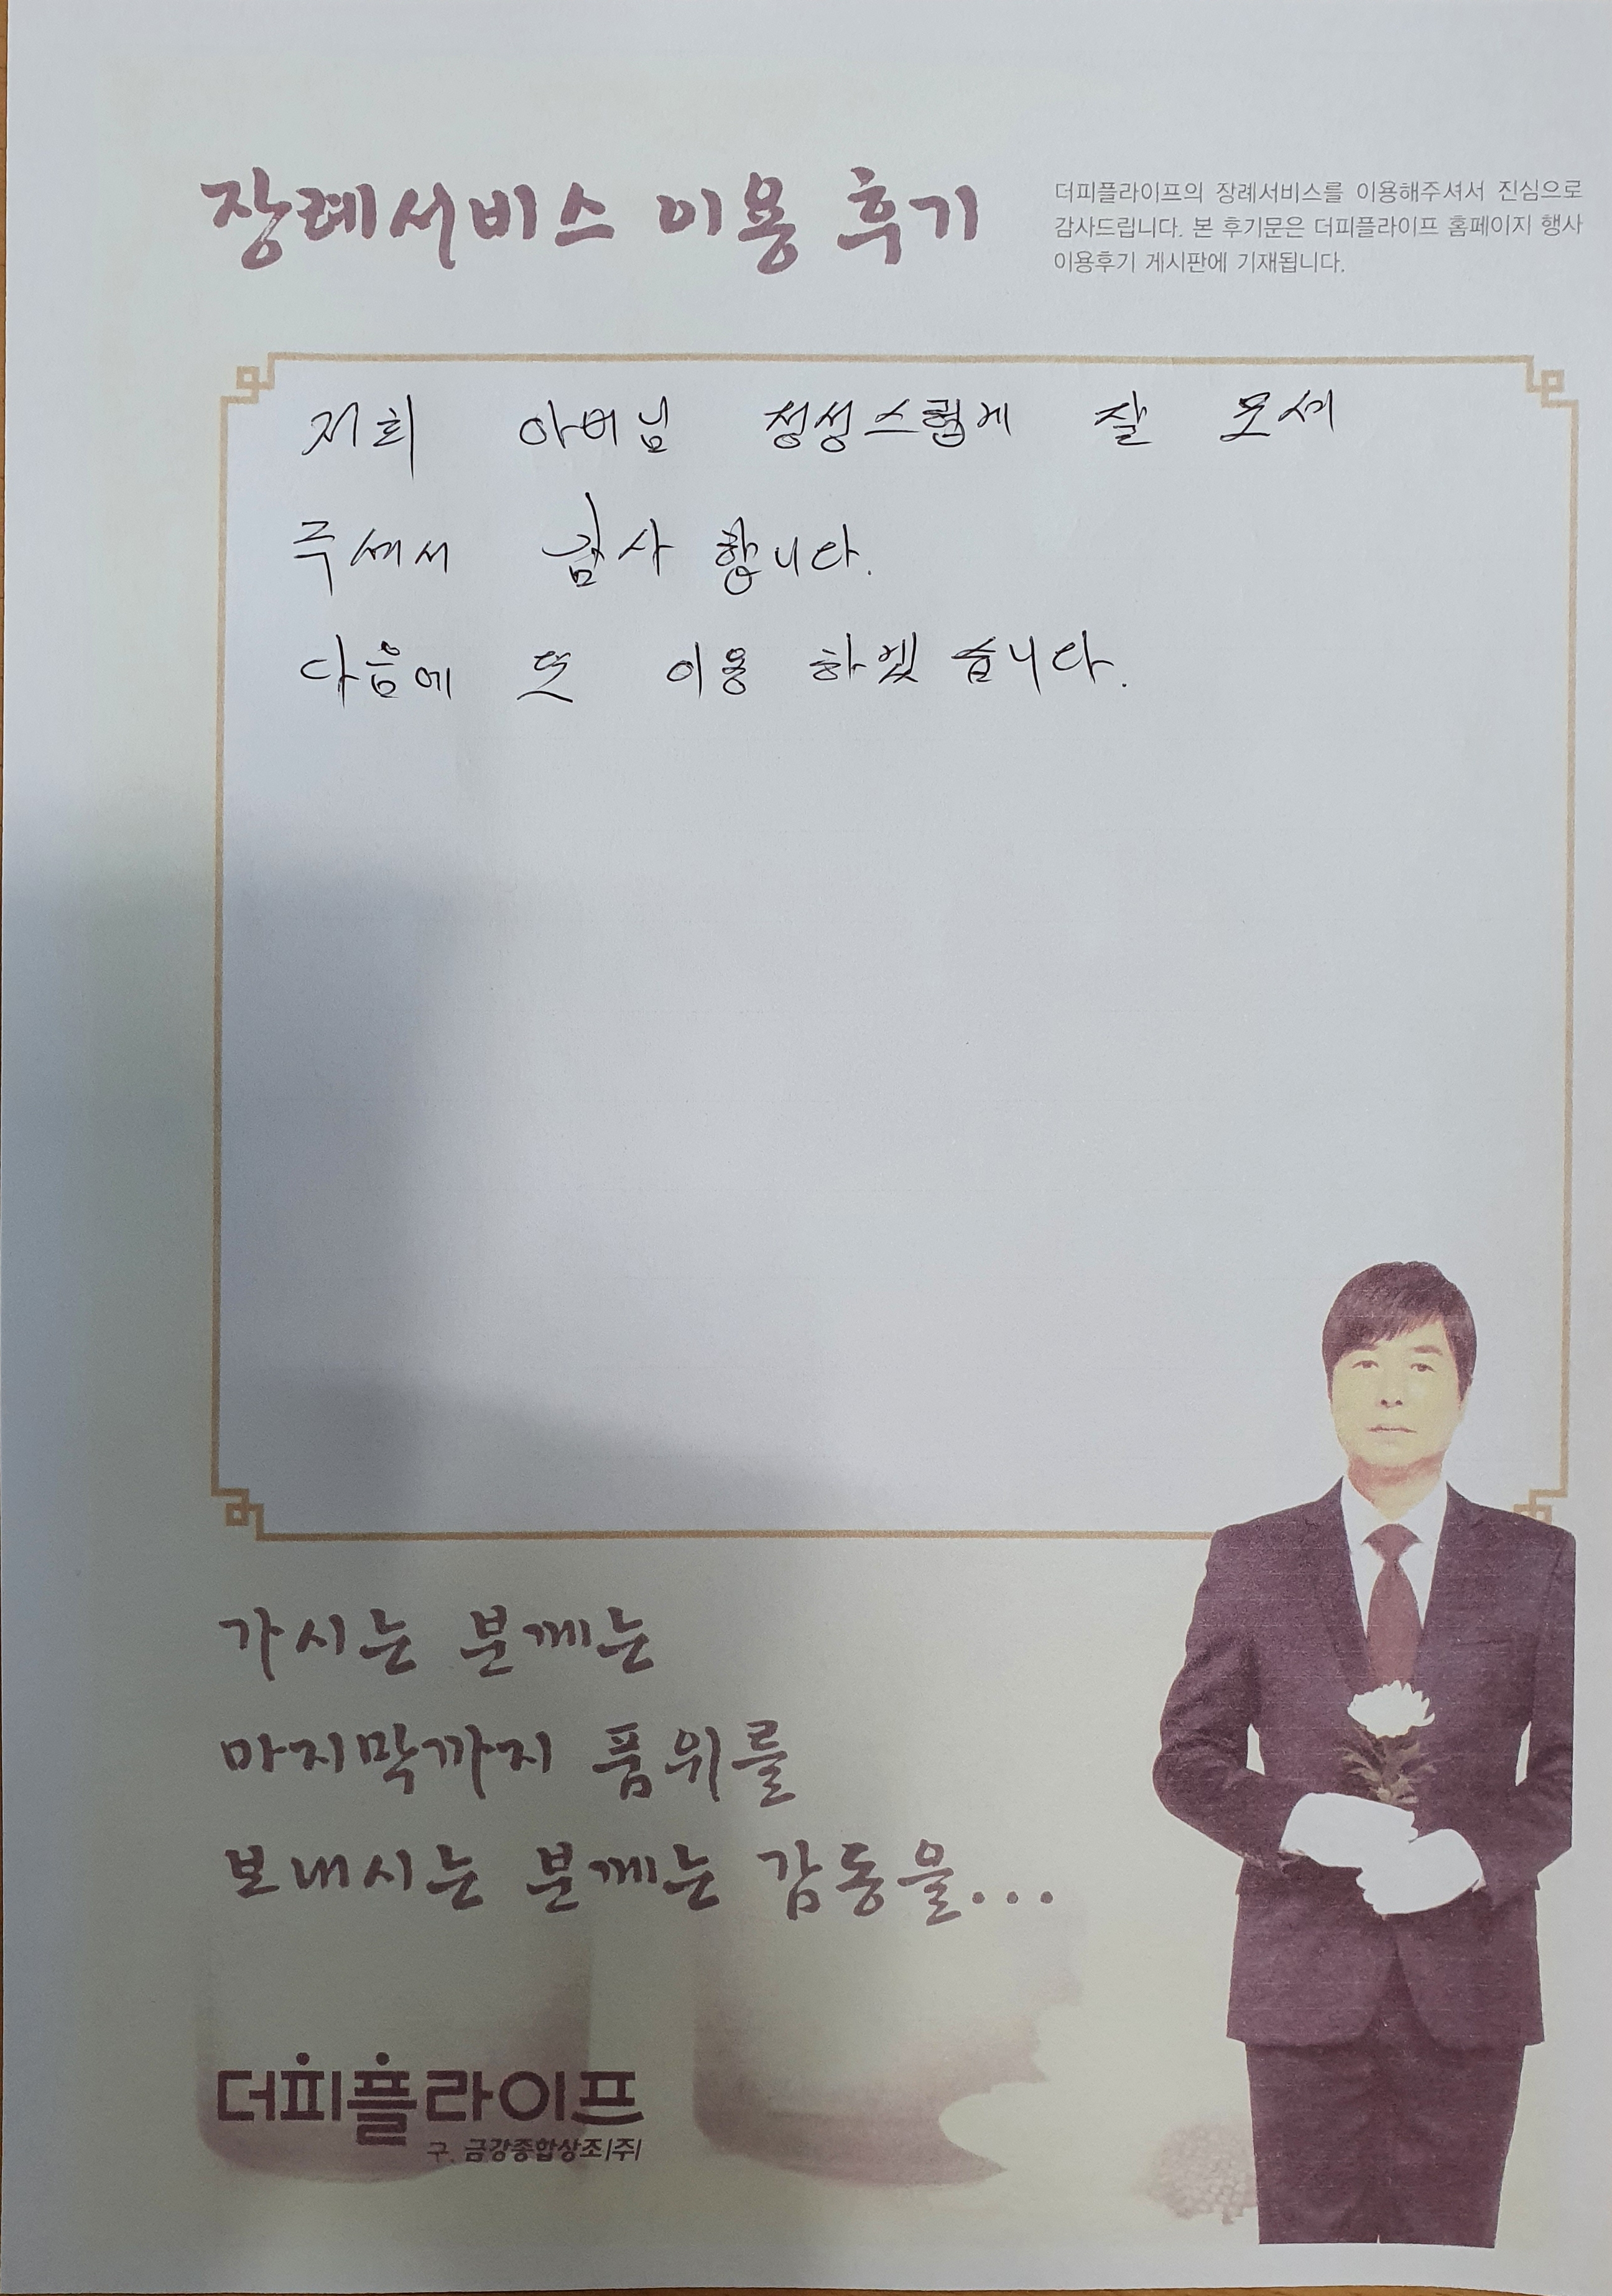 장례서비스 이용 후기
더피플라이프의 장례서비스를 이용해주셔서 진심으로
감사드립니다. 본 후기문은 더피플라이프 홈페이지 행사
이용후기 게시판에 기재됩니다.
저희 아버님 정성스럽게 잘 모셔
주셔서 감사 합니다.
다음에 또 이용 하겠 습니다.
가시는 분께는
마지막까지 품위를
보내시는 분께는 감동을...
더피플라이프
구. 금강종합상조(주)